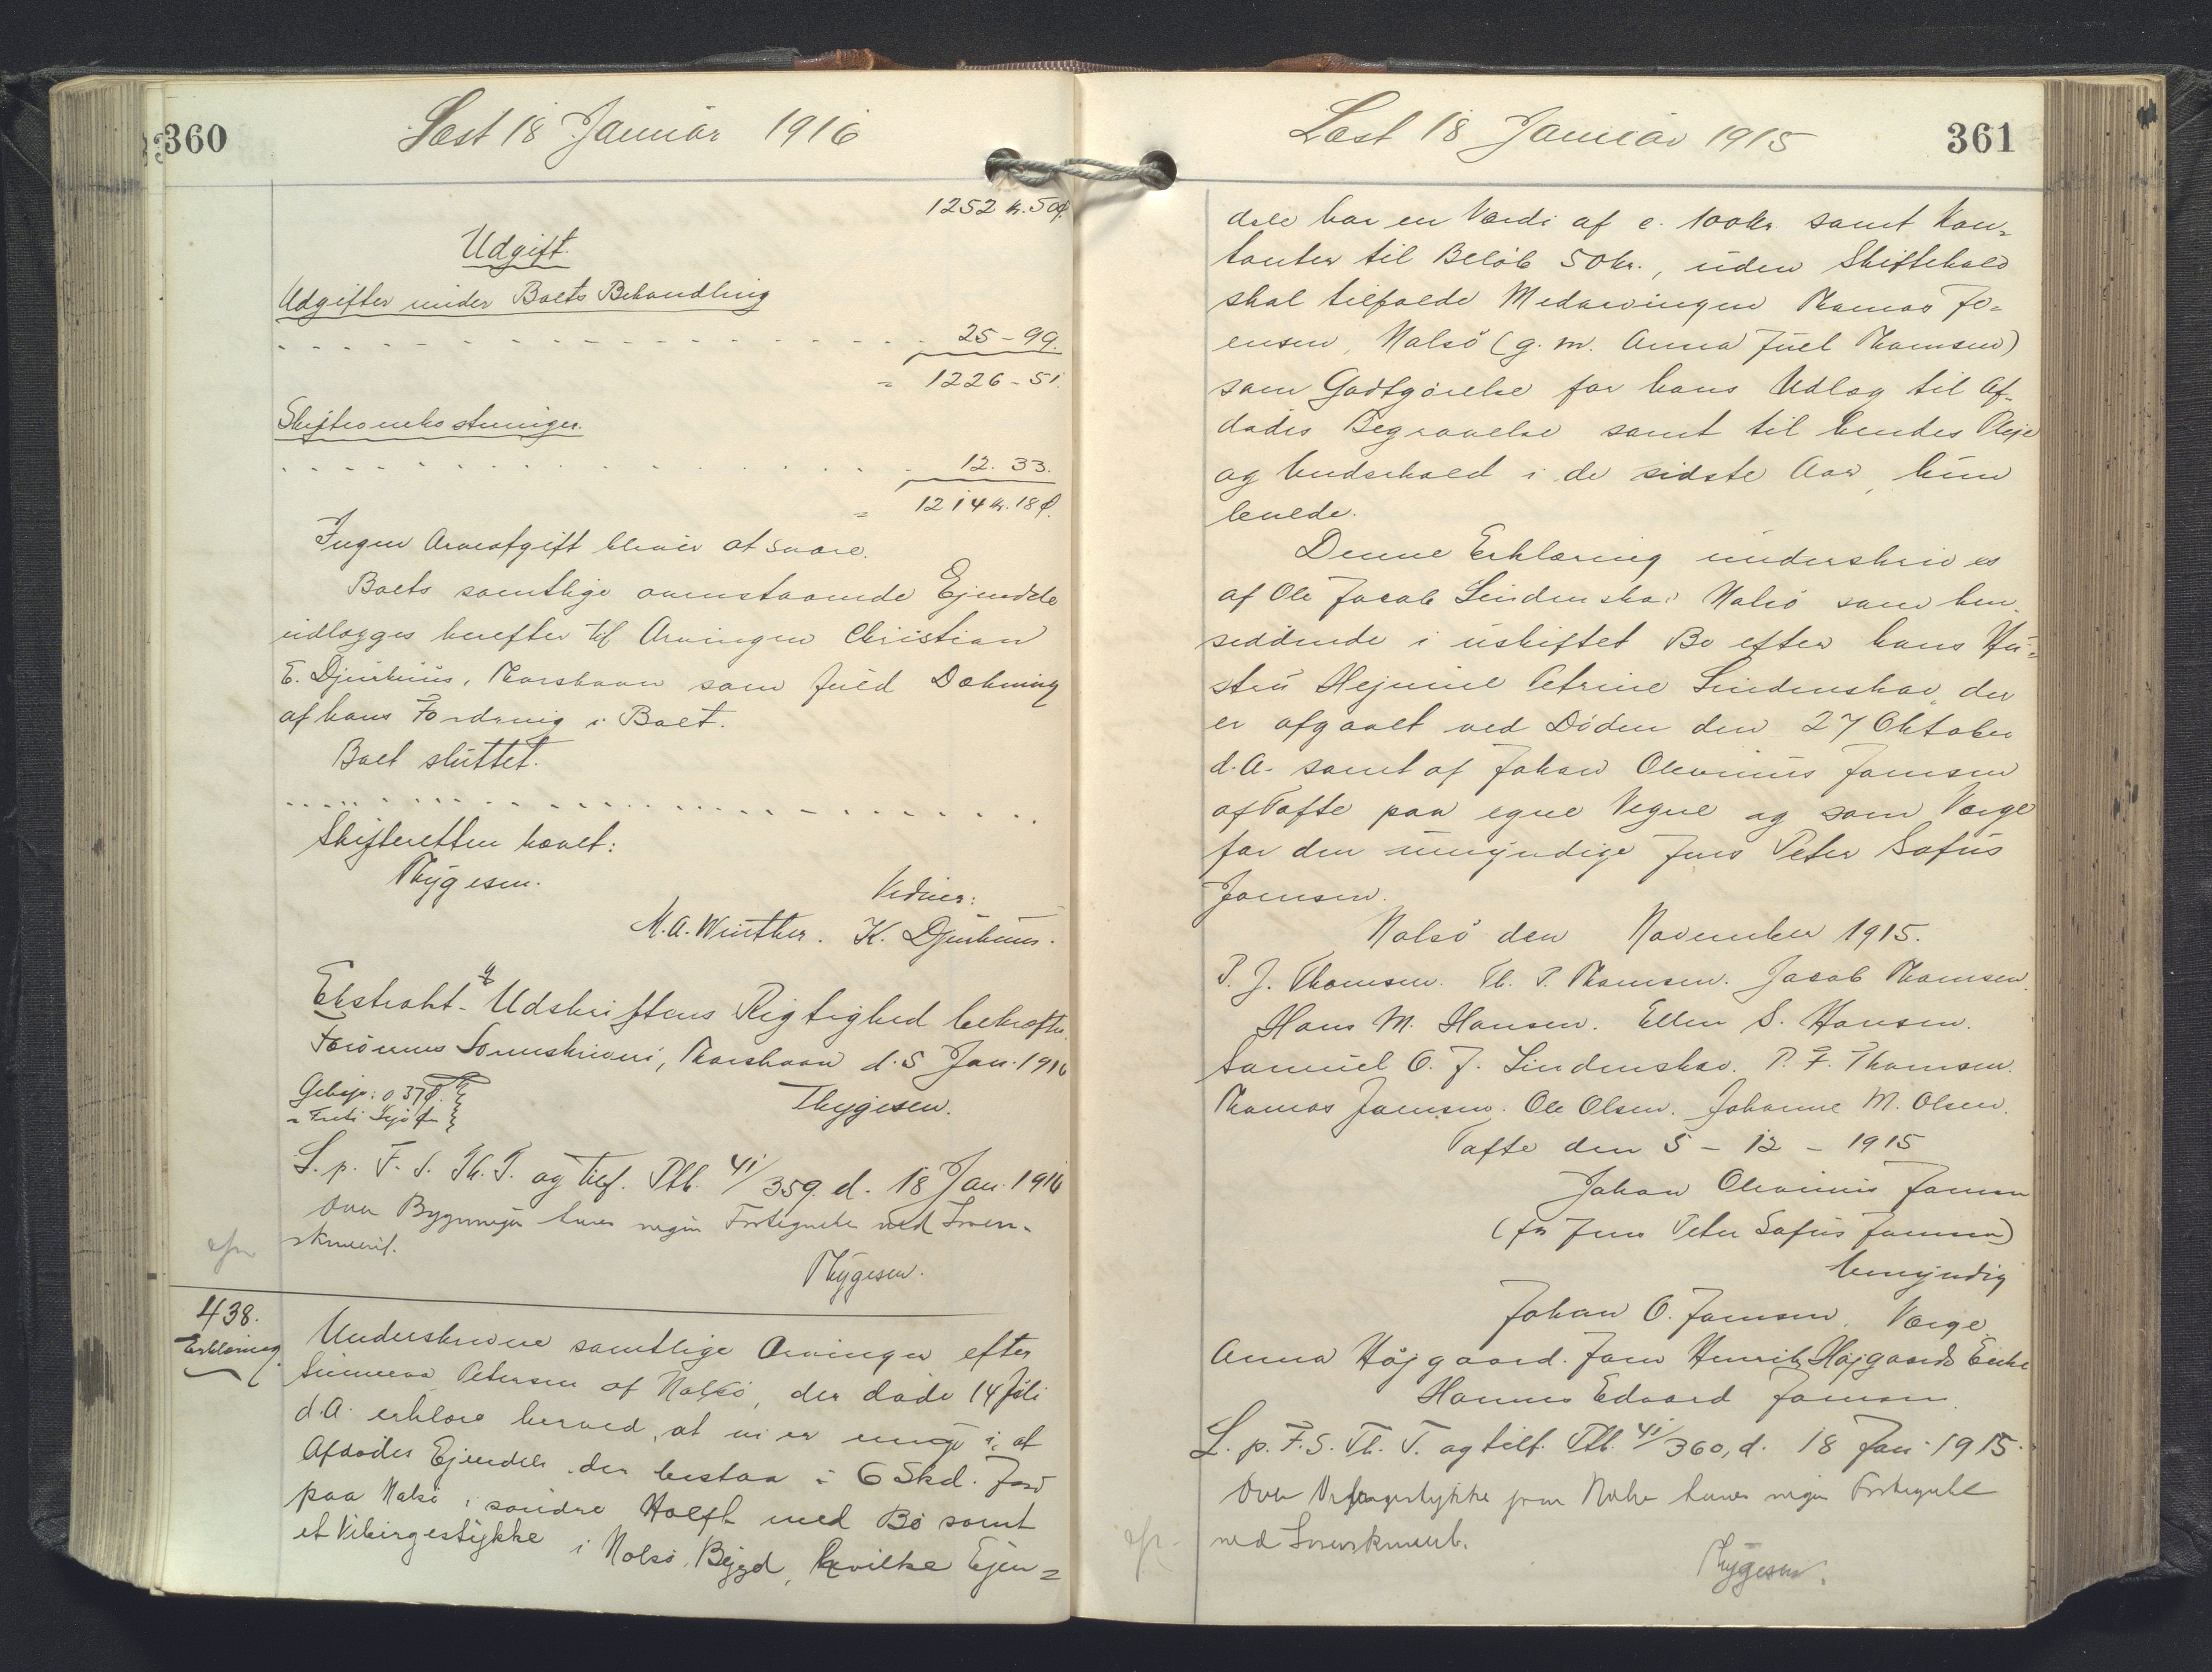 360
Læst 18 Januar 1916
1252 kr. 50 Ø.
Udgift.
Udgifter under Boets Behandling
25 - 99.
= 1226 - 51.
Skifteomkostninger.
12. 33.
= 1214 kr. 18 Ø.
Ingen Arveafgift bliver at svare.
Boets samtlige ovenstaaende Ejendele
udlægges herefter til Arvingen Christian
E. Djurhuus, Thorshavn som fuld Dækning
af hans Fordring i Boet.
Boet sluttet.
Skifteretten hævet:
Thygesen.
Vidner:
M. A. Winther. K. Djurhuus.
Ekstrakt-Udskriftens Rigtighed bekræftes.
Færöernes Sorenskriveri, Thorshavn d. 5 Jan. 1916
Gebyr: 0 37 Ø.
Thygesen.
L. p. F. S. Th. T. og tilf. Ptb. 41/359. d. 18 Jan. 1916
Over Bygningen haves ingen Fortegnelse ved Soren-
skriveriet.
Thygesen.
438.
Erklæring.
Underskrevne samtlige Arvinger efter
Sunneva Petersen af Nolsö, der døde 14 Juli
d.A. erklære herved, at vi er enige i, at
Afdødes Ejendele der bestaa i 6 Skd. Jord
paa Nolsö i søndre Halft med Bö samt
et Virkingestykke i Nolsö Bygd, hvilke Ejen=
361
Læst 18 Januar 1915
dele har en Værdi af c. 100 kr. samt Kon=
tanter til Beløb 50 kr., uden Skiftehold
skal tilfalde Medarvingen Thomas Jo=
ensen, Nolsö (g. m. Anna Juel Thomsen)
som Godtgörelse for hans Udlæg til Af-
dødes Begravelse samt til hendes Pleje
og Underhold i de sidste Aar, hun
levede.
Denne Erklæring underskrives
af Ole Jacob Lindenskov Nolsö som hen-
siddende i uskiftet Bo efter hans Hu=
stru Hejmine Petrine Lindenskov, der
er afgaaet ved Döden den 27 Oktober
d.A. samt af Johan Olevinus Joensen
af Tofte paa egne Vegne og som Værge
for den umyndige Jens Peter Sofus
Joensen.
Nolsö den November 1915.
P. J. Thomsen. Th. P. Thomsen. Jacob Thomsen.
Hans M. Hansen. Ellen S. Hansen.
Samuel O. J. Lindenskov. P. F. Thomsen.
Thomas Joensen. Ole Olsen. Johanne M. Olsen.
Tofte den 5 - 12 - 1915
Johan Olevinus Joensen
(for Jens Peter Sofus Joensen)
Umyndig
Johan O. Joensen. Værge.
Anna Højgaard. Joen Henrik Højgaards Enke
Hannes Edvard Joensen.
L. p. F. S. Th. T. og tilf. Ptb. 41/360, d. 18 Jan. 1915.
Over paa Nolsö haves ingen Fortegnelse
ved Sorenskriveriet.
Thygesen.